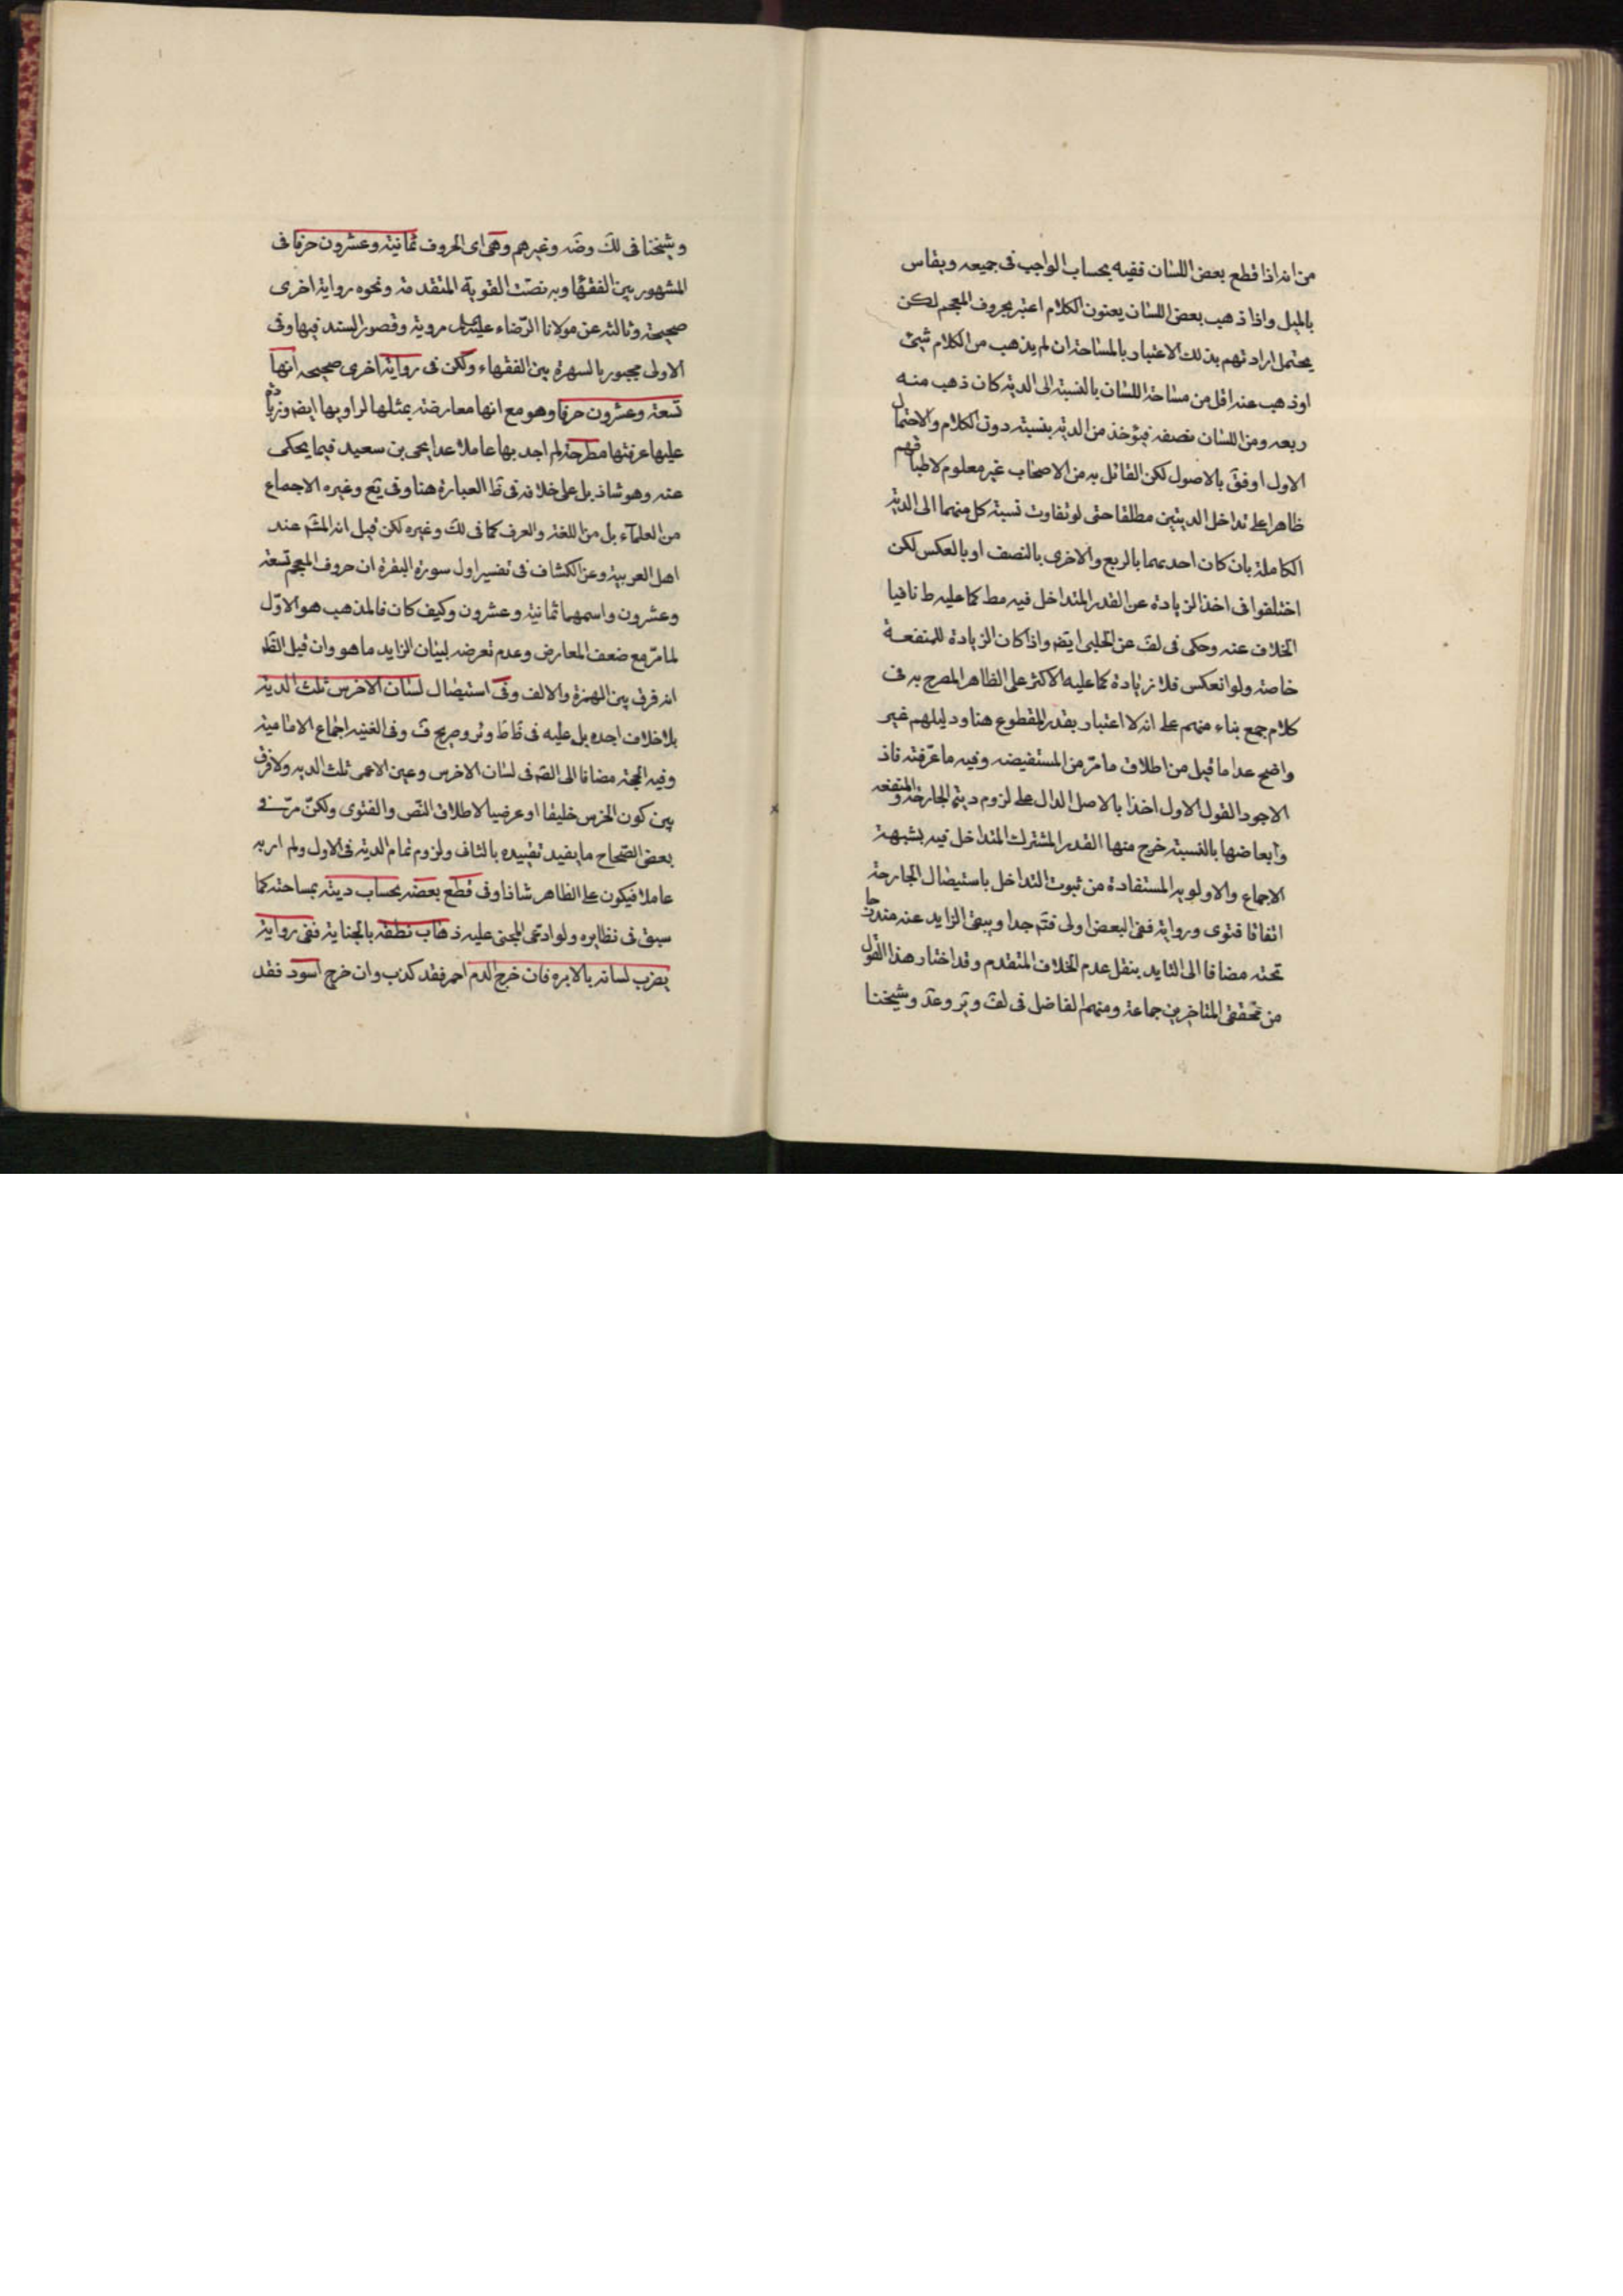 من انه اذا قطع بعض اللسان ففيه بحساب الواجب فى جميعه ويقاس
بالميل واذا ذهب بعض اللسان يعنون الكلام اعتبر بحروف المعجم لكن
يحتمل ارادتهم بذلك الاعتبار بالمساحة ان لم يذهب من الكلام شئ
او ذهب عنه اقل من مساحة اللسان بالنسبة الى الدية كان ذهب منه
ربعه ومن اللسان نصفه فيؤخذ من الدية بنسبته دون الكلام والاحتمال
الاول اوفق بالاصول لكن القائل به من الاصحاب غير معلوم لاطباقهم
ظاهرا على تداخل الديتين مطلقا حتى لو تفاوت نسبة كل منهما الى الدية
الكاملة بان كان احديهما بالربع والاخرى بالنصف او بالعكس لكن
اختلفوا فى اخذ الزيادة عن القدر المتداخل فيه مط كما عليه ط نافيا
الخلاف عنه وحكى فى لف عن الحلبى ايضه واذا كان الزيادة للمنفعة
خاصة ولو انعكس فلا زيادة كما عليه الاكثر على الظاهر المصرح به فى
كلام جمع بناء منهم على انه لا اعتبار بقدر المقطوع هنا ودليلهم غير
واضح عدا ما قيل من اطلاق ما مرّ من المستفيضه وفيه ما عرفته فاذ
الاجود القول الاول اخذا بالاصل الدال على لزوم دية الجارحة والمنفعه
وابعاضها بالنسبة خرج منها القدر المشترك المتداخل فيه بشبهة
الاجماع والاولويه المستفادة من ثبوت التداخل باستيصال الجارحة
اتفاقا فتوى ورواية ففى البعض اولى فتم جدا ويبقى الزايد عنه مندرجا
تحته مضافا الى التايد بنقل عدم الخلاف المتقدم وقد اختار هذا القول
من محققى المتاخرين جماعة ومنهم الفاضل فى لف وير وعد وشيخنا
وشيخنا فى لك وضه وغيرهم وهى اى الحروف ثمانية وعشرون حرفا فى
المشهور بين الفقهاء وبه نصت القوية المتقدمة ونحوه رواية اخرى
صحيحة وثالثة عن مولانا الرضاء عليه السلم مروية وقصور السند فيها وفى
الاولى مجبور بالشهرة بين الفقهاء ولكن فى رواية اخرى صحيحه انها
تسعة وعشرون حرفا وهو مع انها معارضة بمثلها لراويها ايضه وزيادة
عليها عرفتها مطرحة لم اجد بها عاملا عدا يحيى بن سعيد فيما يحكى
عنه وهو شاذ بل على خلافه فى ظ العبارة هنا وفى يع وغيره الاجماع
من العلماء بل من اللغة والعرف كما فى لك وغيره لكن قيل انه المشهر عند
اهل العربية وعن الكشاف فى تفسير اول سورة البقرة ان حروف المعجم تسعة
وعشرون واسمهما ثمانية وعشرون وكيف كان فالمذهب هو الاوّل
لما مرّ مع ضعف المعارض وعدم تعرضه لبيان الزايد ما هو وان قيل الظ
انه فرق بين الهمزة والالف وفى استيصال لسان الاخرس ثلث الدية
بلا خلاف اجده بل عليه فى ظاهر ط وئر وصريح ف وفى الغنيه اجماع الامامية
وفيه الحجة مضافا الى القم فى لسان الاخرس وعين الاعمى ثلث الديه ولا فرق
بين كون الخرس خليقا او عرضيا لاطلاق النّص والفتوى ولكن مرّ فى
بعض الصّحاح ما يفيد تقييده بالثانى ولزوم تمام الدية فى الاول ولم اربه
عاملا فيكون على الظاهر شاذا وفى قطع بعضه بحساب ديته بمساحته كما
سبق فى نظايره ولو ادعى المجنى عليه ذهاب نطقه بالجناية ففى رواية
يضرب لسانه بالابره فان خرج الدم احمر فقد كذب وان خرج اسود فقد